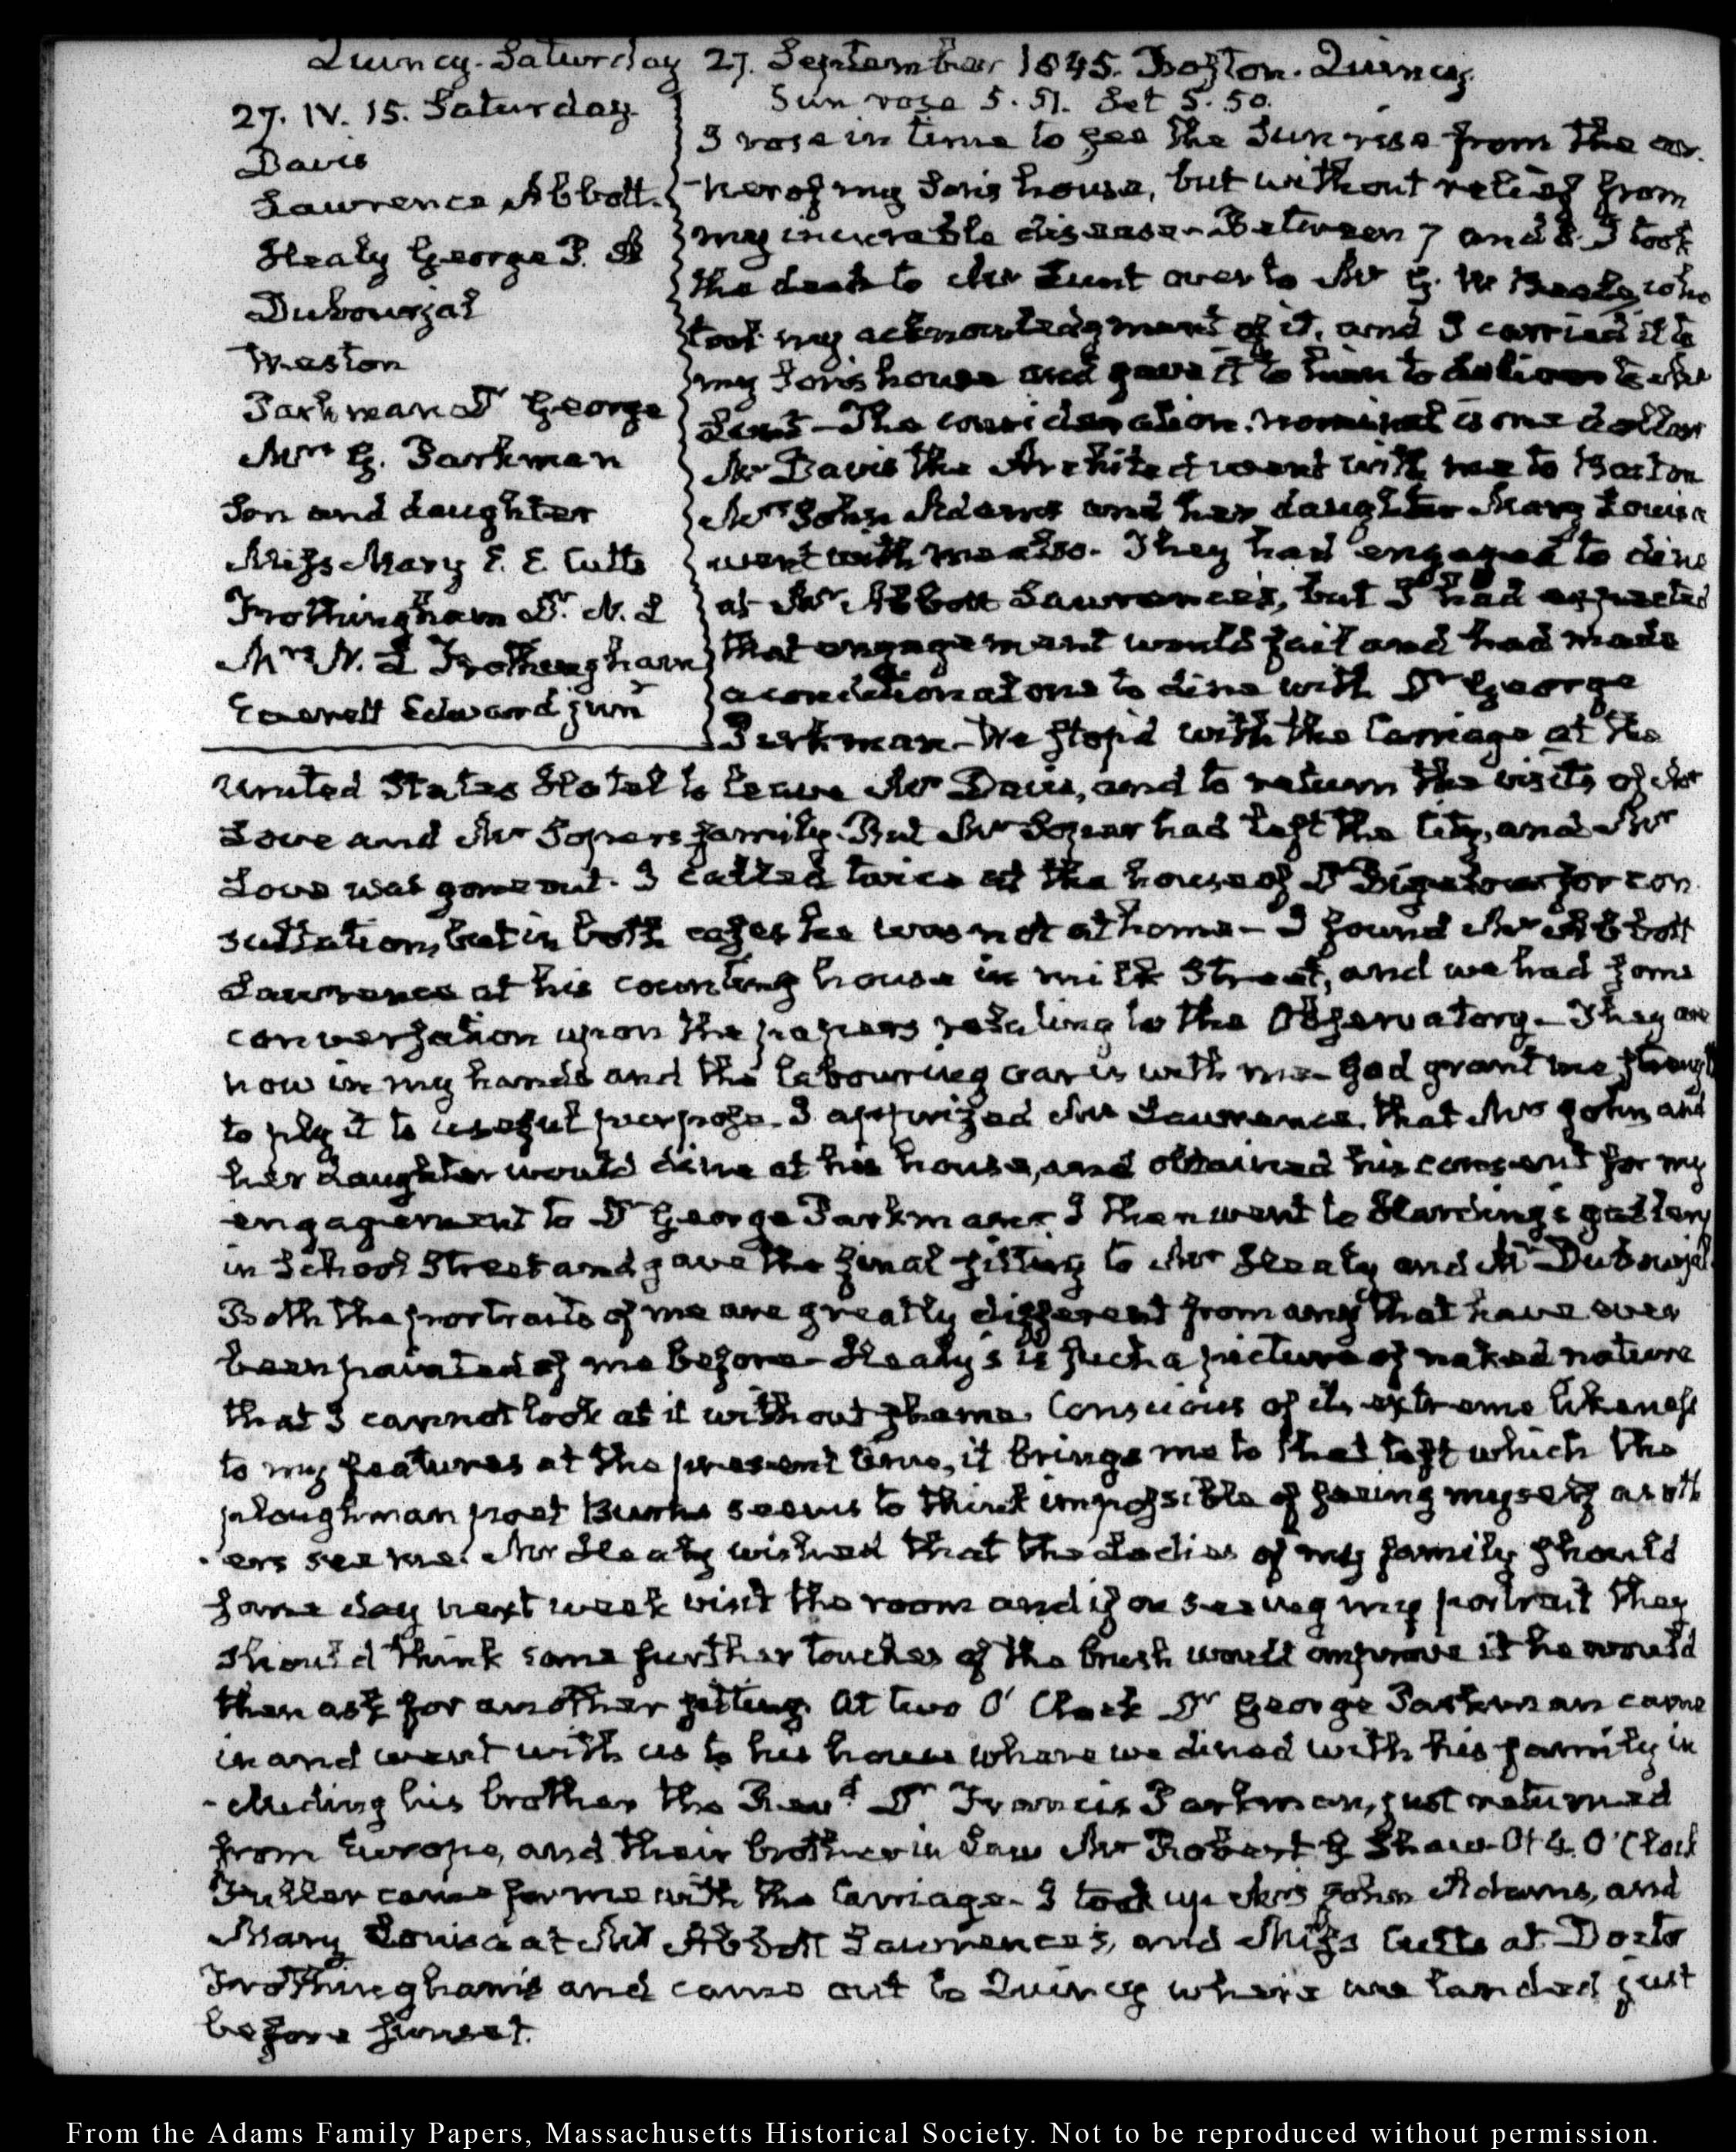 Quincy. Saturday 27. September 1845. Boston. Quincy.
27. IV. 15. Saturday.
Davis
Lawrence Abbott.
Healy George P. A
Dubourjal
Weston
Parkman Dr George
Mrs G. Parkman
Son and daughter
Miss Mary E. E. Cutts
Frothingham Dr. N. L
Mrs N. L Frothingham
Everett Edward junr
Sun rose 5.51. Set 5.50.
I rose in time to see the Sun rise from the cor-
-ner of my Son's house, but without relief from
my incurable disease - Between 7 and 8. I took
the deed to Mr Lunt over to Mr G. W Beale, who
took my acknowledgment of it, and I carried it to
my Son's house and gave it to him to deliver to Mr
Lunt - The consideration nominal is one dollar
Mr Davis the Architect went with me to Boston
Mrs John Adams and her daughter Mary Louisa
went with me also. They had engaged to dine
at Mr Abbott Lawrence's, but I had expected
that engagement would fail and had made
a conditional one to dine with Dr George
Parkman - We stop'd with the Carriage at the
United States Hotel to leave Mr Davis, and to return the visits of Mr
Love and Mr Soper's family. But Mr Soper had left the City, and Mr
Love was gone out. I called twice at the house of Dr Bigelow for con
sultation, but in both cases he was not at home - I found Mr Abbott
Lawrence at his counting house in milk Street, and we had some
conversation upon the papers relating to the Observatory - They are
now in my hands and the labouring oar is with me - God grant me strength
to ply it to useful purpose. I apprized Mr Lawrence, that Mrs John and
her daughter would dine at his house, and obtained his consent for my
engagement to Dr George Parkman. I then went to Harding's gallery
in School Street and gave the final sitting to Mr Healy and Mr Dubourjal.
Both the portraits of me are greatly different from any that have ever
been painted of me before - Healy's is such a picture of naked nature
that I cannot look at it without shame. Conscious of its extreme likeness
to my features at the present time, it brings me to that test which the
ploughman poet Burns seems to think impossible of seeing myself as oth
-ers see me. Mr Healy wished that the Ladies of my family should
some day next week visit the room and if on seeing my portrait they
should think some further touches of the brush would improve it he would
then ask for another sitting. At two O' Clock Dr George Parkman came
in and went with us to his house where we dined with his family in
-cluding his brother the Revd Dr Francis Parkman, just returned
from Europe, and their brother in Law Mr Robert G Shaw - At 4. O'Clock
Fuller came for me with the Carriage - I took up Mrs John Adams, and
Mary Louisa at Mr Abbott Lawrence's, and Miss Cutts at Doctr
Frothingham's and came out to Quincy where we landed just
before sunset.
From the Adams Family Papers, Massachusetts Historical Society. Not to be reproduced without permission.